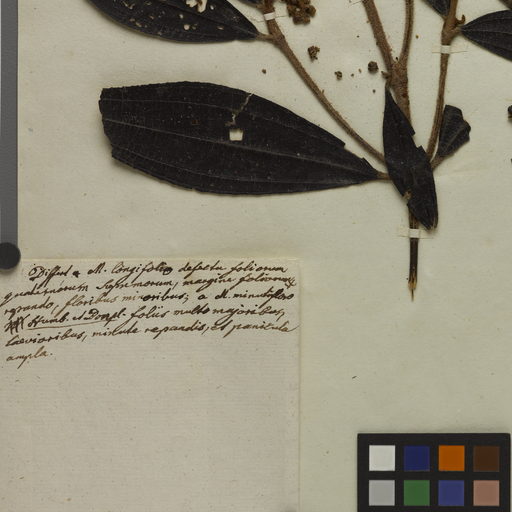 Differt a M. longifolia defectu foliorum
quaternorum summorum, margine foliorum
repando, floribus minoribus; a M. minutiflora
Humb. et Bonpl. foliis multo majoribus,
laevioribus, minute repandis, et panicula
ampla.